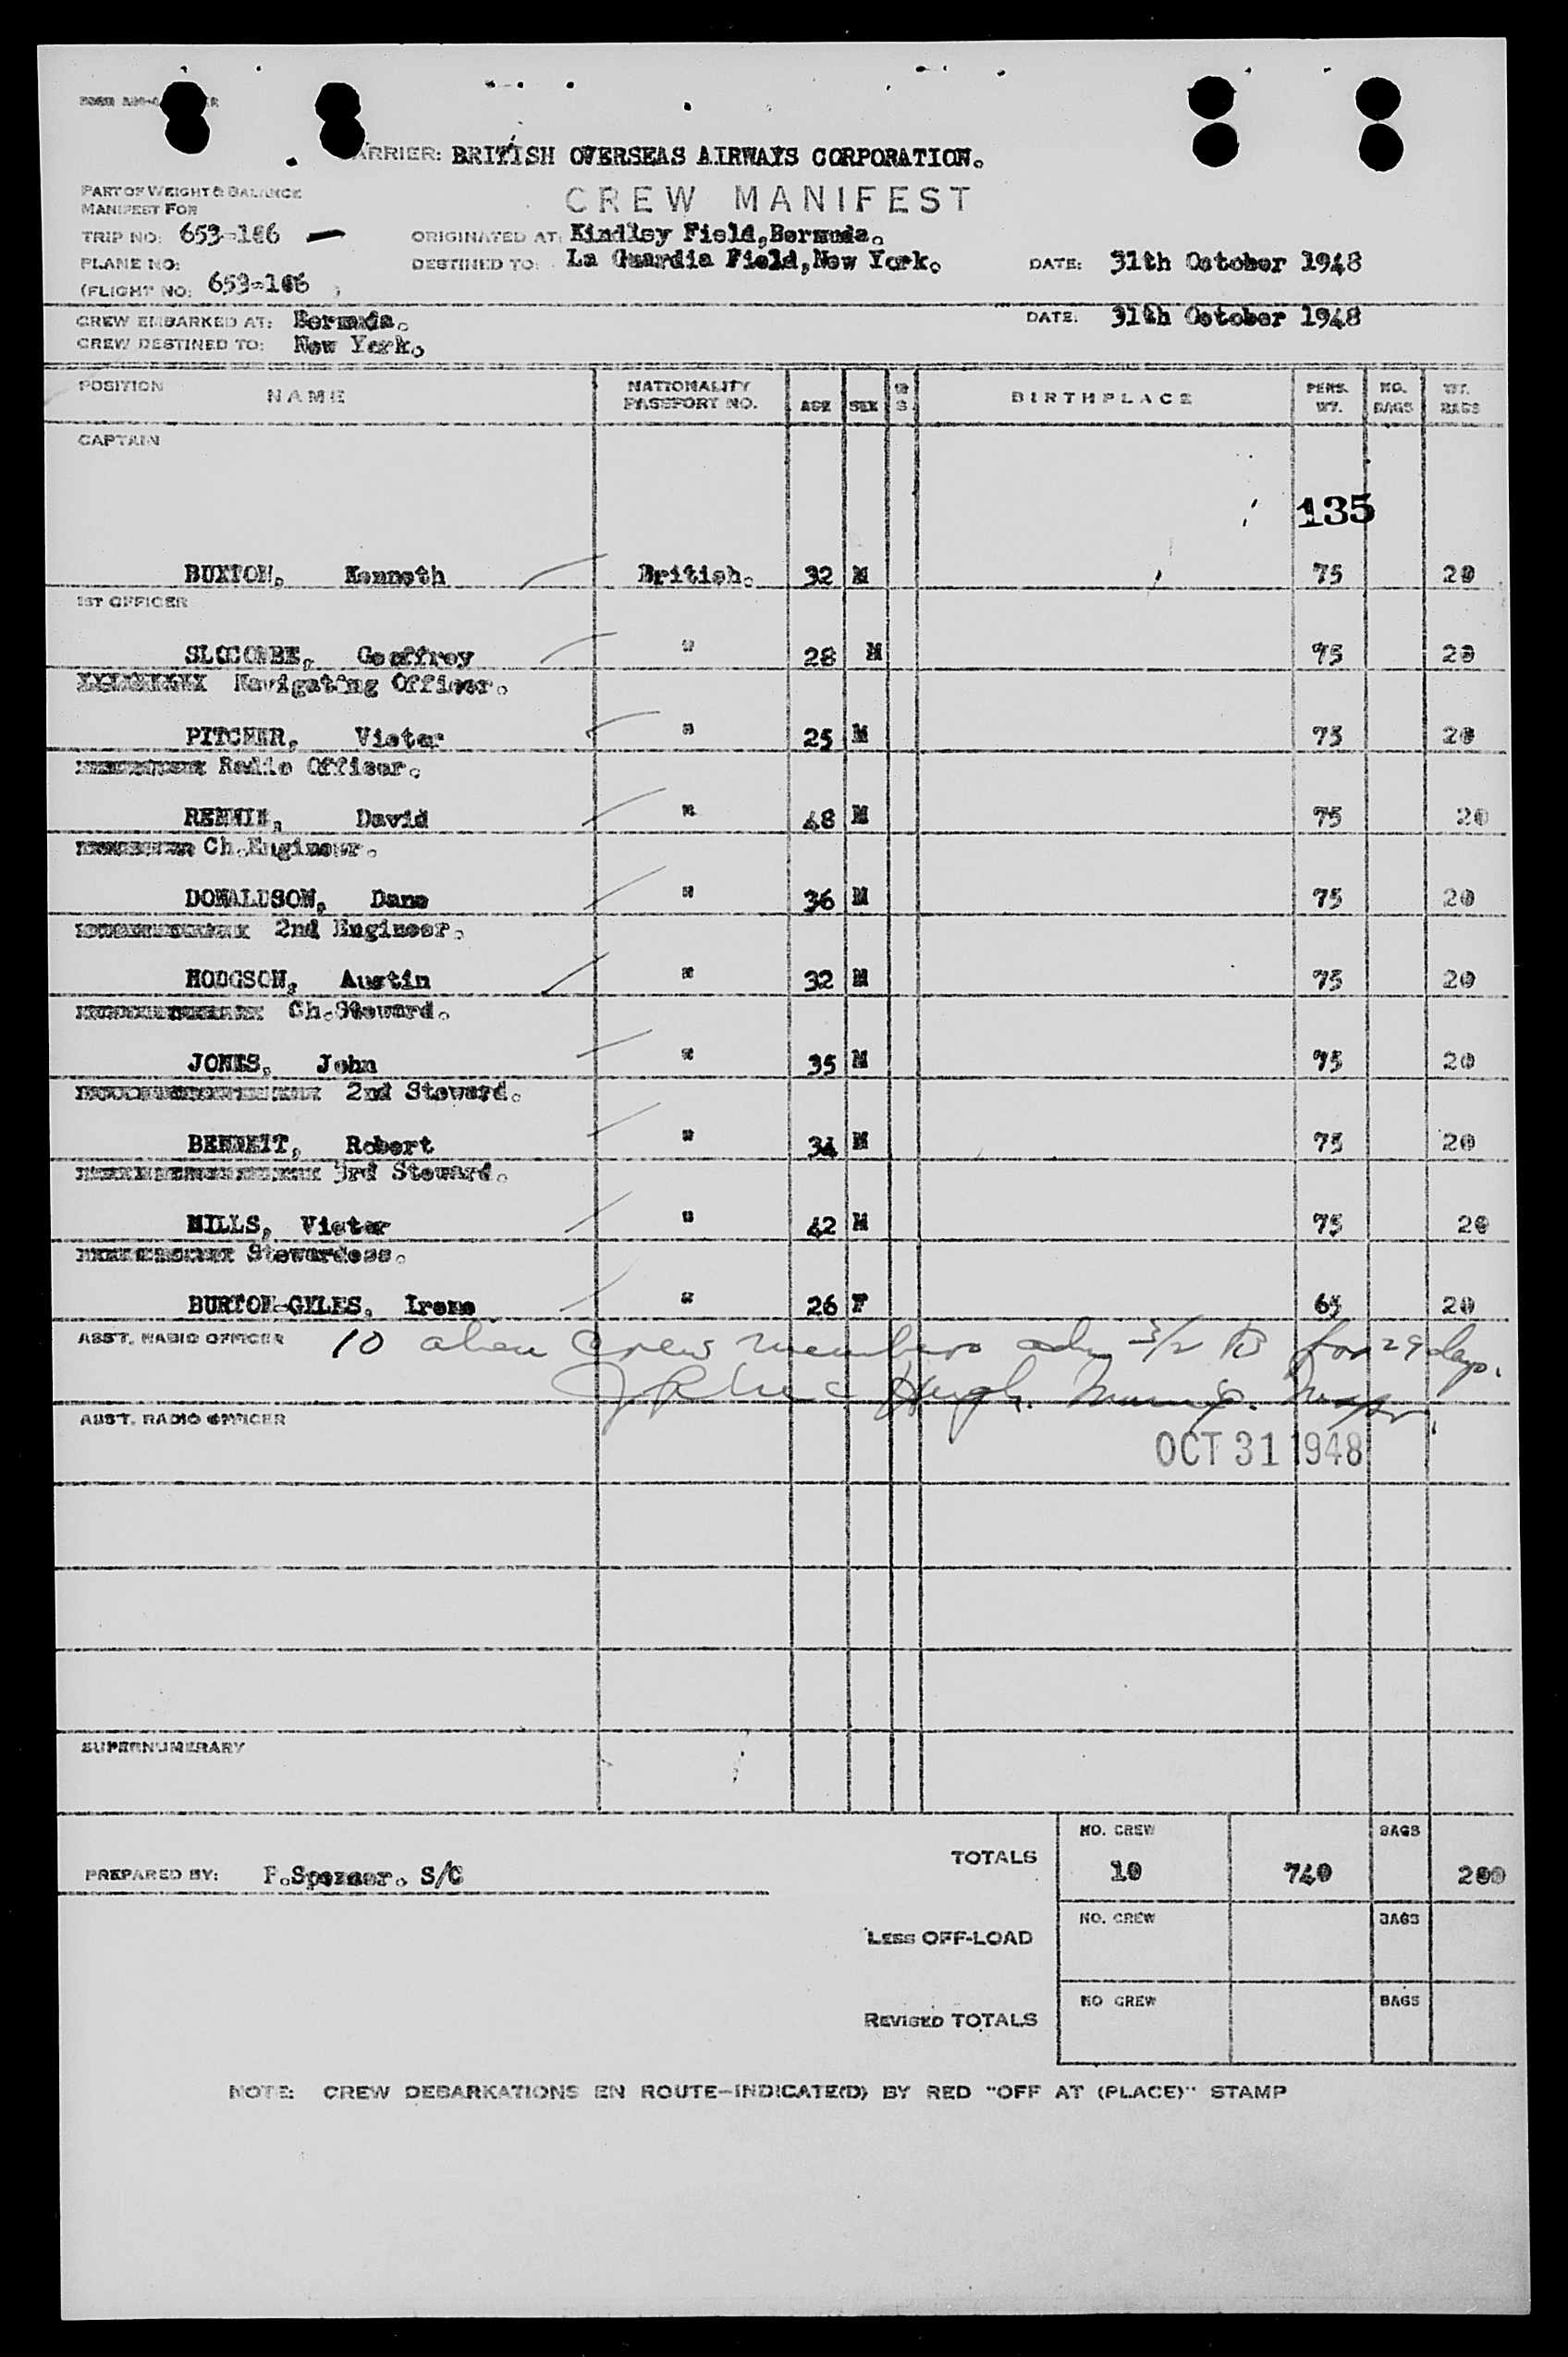 CARRIER: BRITISH OVERSEAS AIRWAYS CORPORATION.
PART OF WEIGHT & BALANCE
MANIFEST FOR
CREW MANIFEST
TRIP NO: 653-166 ORIGINATED AT: Kindley Field, Bermuda.
PLANE NO: DESTINED TO: La Guardia Field, New York. DATE: 31th October 1948
(FLIGHT NO: 653-166 )
CREW EMBARKED AT: Bermuda. DATE: 31th October 1948
CREW DESTINED TO: New York.
POSITION NAME NATIONALITY PASSPORT NO. AGE SEX BIRTHPLACE PERS. WT. NO. BAGS WT. BAGS
CAPTAIN
135
BUXTON, Kenneth British. 32 M 75 20
1ST OFFICER
SLOCOMBE, Geoffrey " 28 M 75 20
Navigating Officer.
PITCHER, Victor " 25 M 75 20
Radio Officer.
RENNIE, David " 48 M 75 20
Ch.Engineer.
DONALDSON, Dane " 36 M 75 20
2nd Engineer.
HODGSON, Austin " 32 M 75 20
Ch.Steward.
JONES, John " 35 M 75 20
2nd Steward.
BENNETT, Robert " 34 M 75 20
3rd Steward.
MILLS, Victor " 42 M 75 20
Stewardess.
BURTON-GYLES, Irene " 26 F 65 20
ASST. RADIO OFFICER 10 alien crew members adm 3/2 for 29 days.
ASST. RADIO OFFICER
OCT 31 1948
SUPERNUMERARY
NO. CREW BAGS
TOTALS 10 740 200
PREPARED BY: F.Spencer. S/C
NO. CREW BAGS
LESS OFF-LOAD
NO CREW BAGS
REVISED TOTALS
NOTE: CREW DEBARKATIONS EN ROUTE-INDICATE(D) BY RED "OFF AT (PLACE)" STAMP